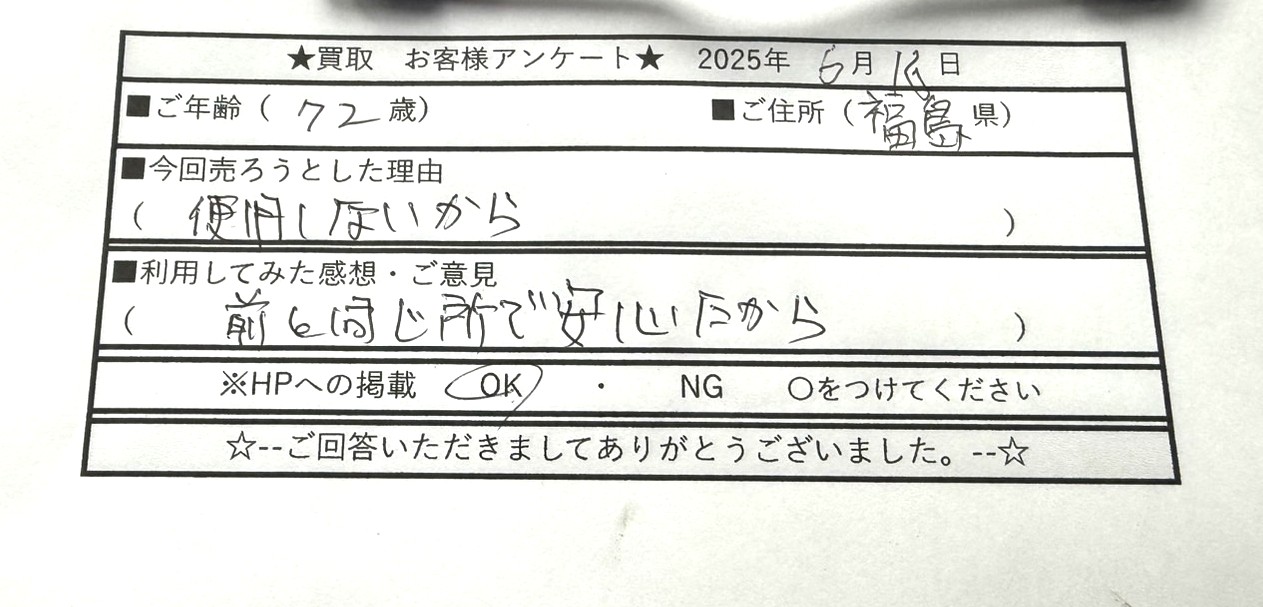 ★買取 お客様アンケート★ 2025年 6月 日
■ご年齢（ 72 歳） ■ご住所（福島県）
■今回売ろうとした理由
（ 使用しないから ）
■利用してみた感想・ご意見
（ 前も同じ所で安心だから ）
※HPへの掲載 OK ・ NG ○をつけてください
☆--ご回答いただきましてありがとうございました。--☆